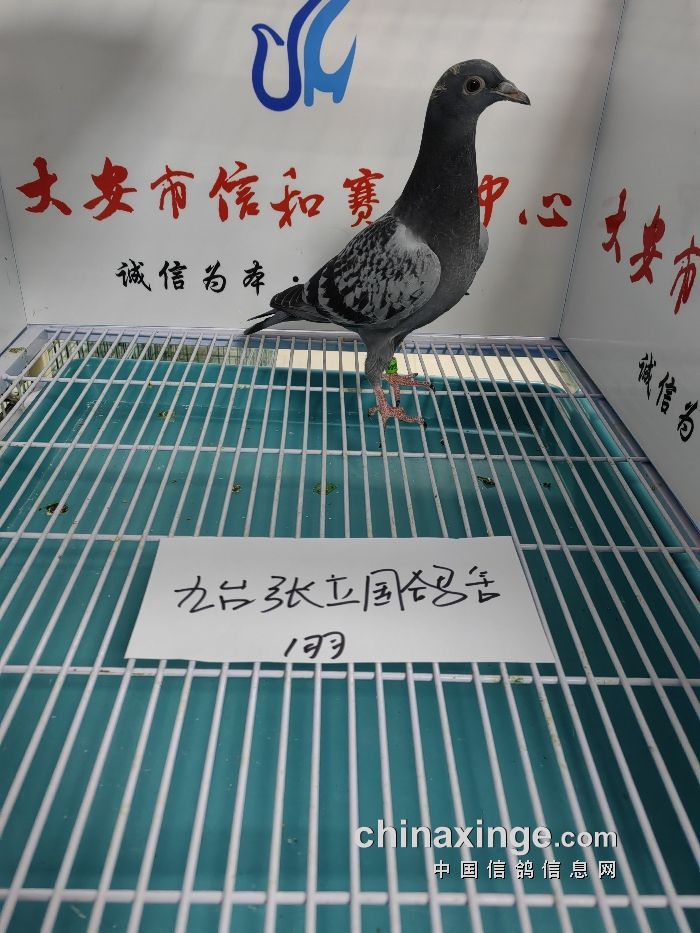 大安市信和赛 中心
诚信为本·
大安市
诚信为
九台张立国鸽舍
1羽
chinaxinge.com
中国信鸽信息网